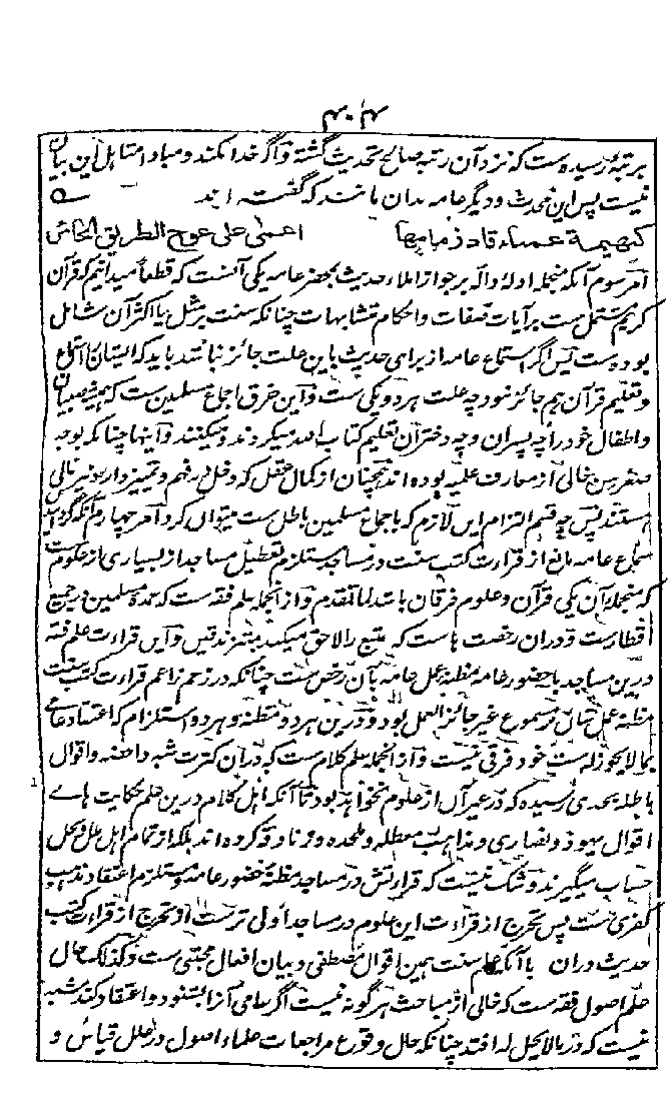 ۴۰۴
برتبهٔ رسیده‌ست که نزد آن رتبه صالح تحدیث گشته و اگر خدا نکند و مبادا مقابل این بیان
نیست پس این محدث و دیگر عامه بدان مانند که گفته اند
كبهيمة عمياء قاد زمامها اعمى على عوج الطريق الحائر
امر سوم آنکه منجمله ادلهٔ داله بر جواز املاء حدیث بحضر عامه یکی آنست که قطعاً میدانیم که قرآن
کریم مشتمل ست بر آیات صفات و احکام متشابهات چنانکه سنت برمثل یا اکثر آن شامل
بوده‌ست پس اگر استماع عامه از برای حدیث باین علت جائز نباشد باید که ایشان را استماع
و تعلیم قرآن هم جائز نبود چه علت هر دو یکی ست و این خرق اجماع مسلمین ست که همیشه صبیان
و اطفال خود را چه پسران و چه دختران تعلیم کتاب الله میکردند و میکنند و اینها چنانکه بوجه
صغر سن خالی از معارف علمیه بوده اند همچنان از کمال عقل که دخل در فهم و تمییز دارد نیز خالی
هستند پس چه قسم التزام این لازم که باجماع مسلمین باطل ست میتوان کرد امر چهارم آنکه اگر
سماع عامه مانع از قراءت کتب سنت در مساجد مستلزم تعطیل مساجد از بسیاری از علوم ست
که منجملهٔ آن یکی قرآن و علوم فرقان باشد لما تقدم و از آنجمله علم فقه ست که عمدهٔ مسلمین در جمیع
اقطارست و در ان رخصت هاست که متتبع را لاحق میکند بمتزندقین و این قراءت علم فقه
درین مساجد با حضور عامه مظنهٔ عمل عامه بآن رخص ست چنانکه در زعم زاعم قراءت کتب سنت
مظنهٔ عمل شان بر مسموع غیر جائز العمل بود و درین هر دو مظنه و هر دو استلزام که اعتقاد عامی
بما لا یجوز له ست خود فرقی نیست و از آنجمله علم کلام ست که در ان کثرت شبه داحضه و اقوال
باطله بحدی رسیده که در غیر آن از علوم نخواهد بود تا آنکه اهل کلام درین علم حکایت های
اقوال یهود و نصاری و مذاهب معطله و ملحده و زنادقه کرده اند بلکه از تمام اهل ملل و نحل
حساب میگیرند و شک نیست که قراءتش در مساجد مظنهٔ حضور عامه و مستلزم اعتقاد مذهب
کفری ست پس تحرج از قراءت این علوم در مساجد اولی تر ست از تحرج از قراءت کتب
حدیث دران با آنکه علم سنت همین اقوال مصطفی و بیان افعال مجتبی ست و کذلک حال
علم اصول فقه ست که خالی از مباحث هر گونه نیست اگر سامی آنرا بشنود و اعتقاد کند شبه
نیست که در ما لا یحل له افتد چنانکه حال وقوع مراجعات علماء اصول در علل قیاس و